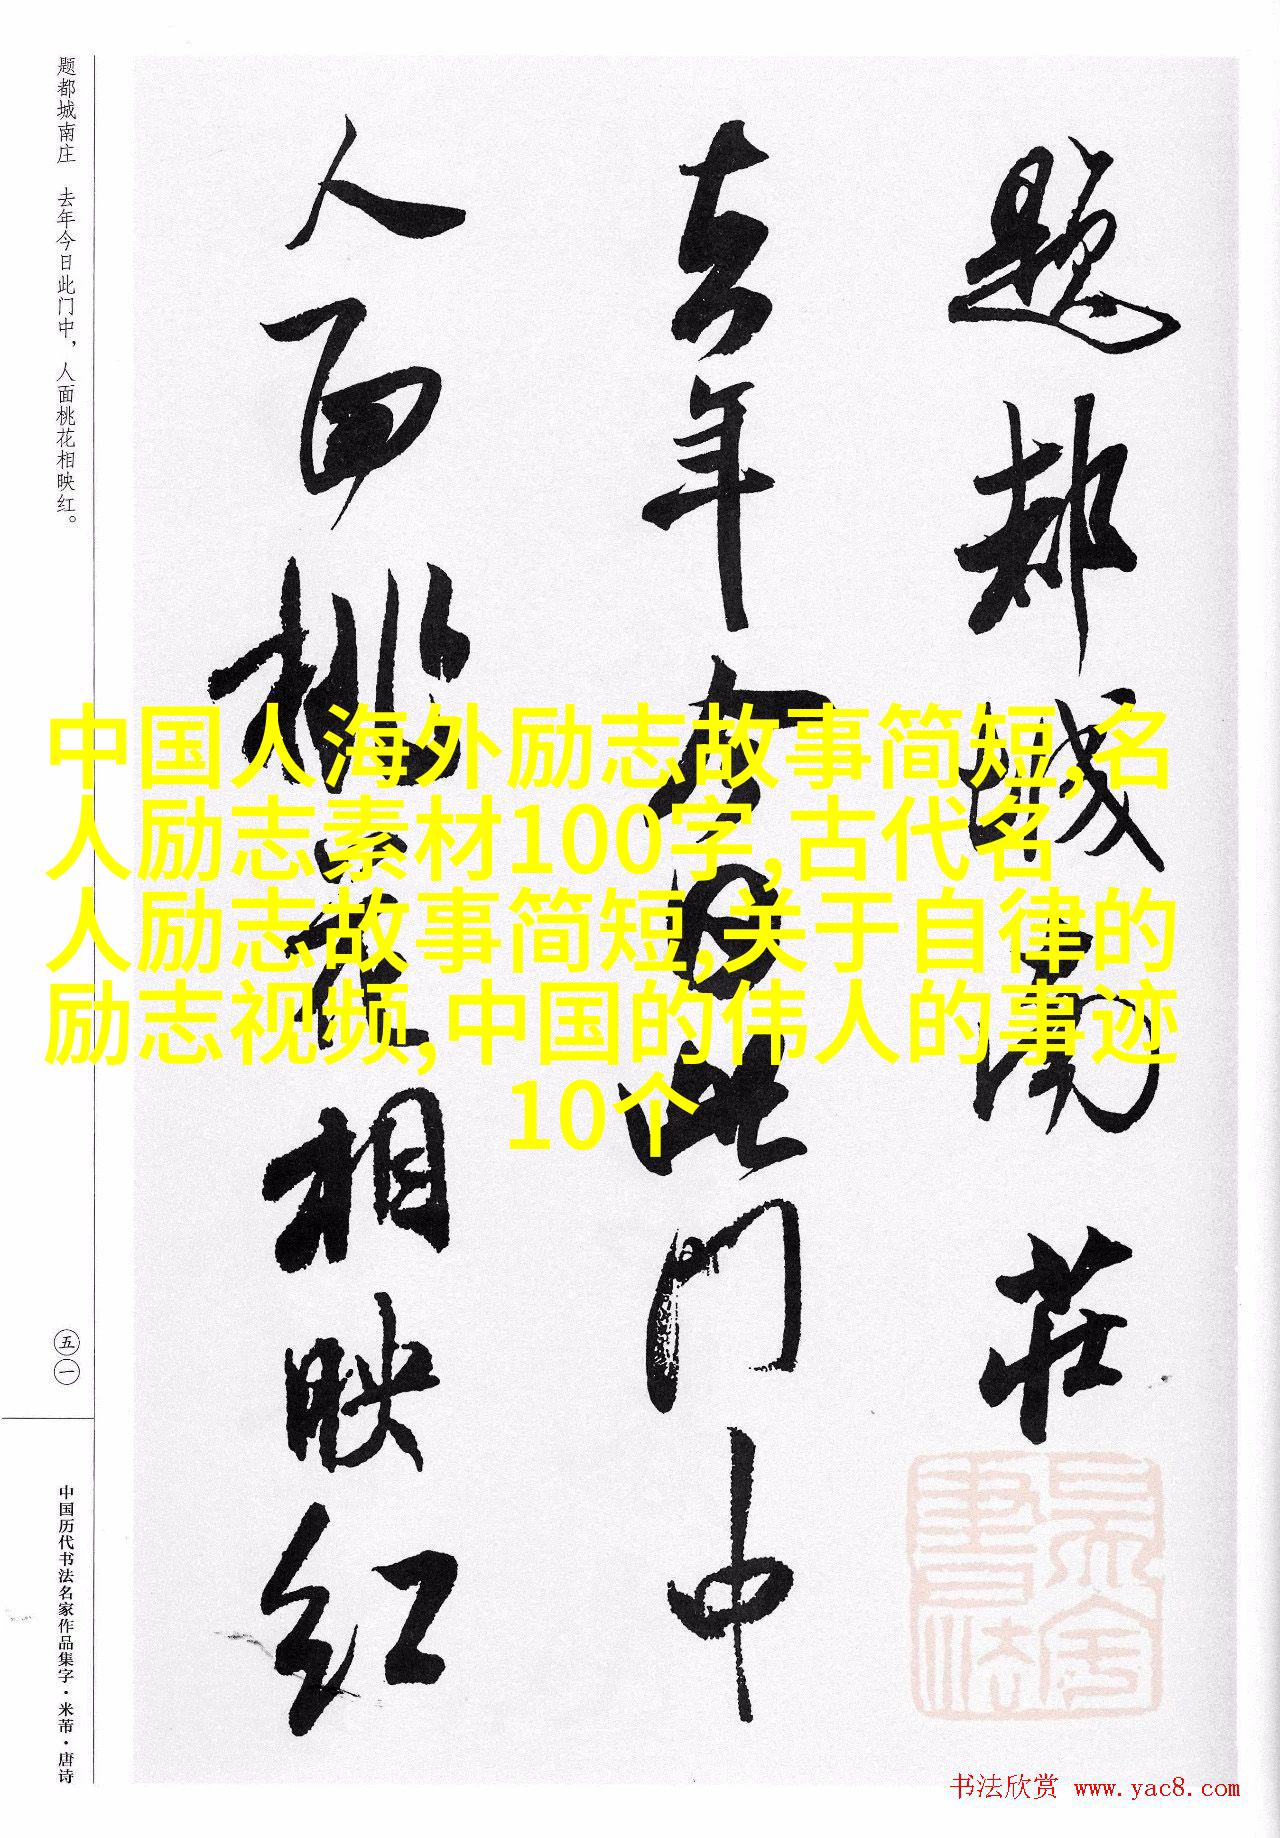 题都城南莊
去年今日此门中
人面桃花相映红
题都城南庄 去年今日此门中，人面桃花相映红。
五一
中国历代书法名家作品集字·米芾·唐诗
中国人海外励志故事简短,名
人励志素材100字,古代名
人励志故事简短,关于自律的
励志视频,中国的伟人的事迹
10个
书法欣赏 www.yac8.com